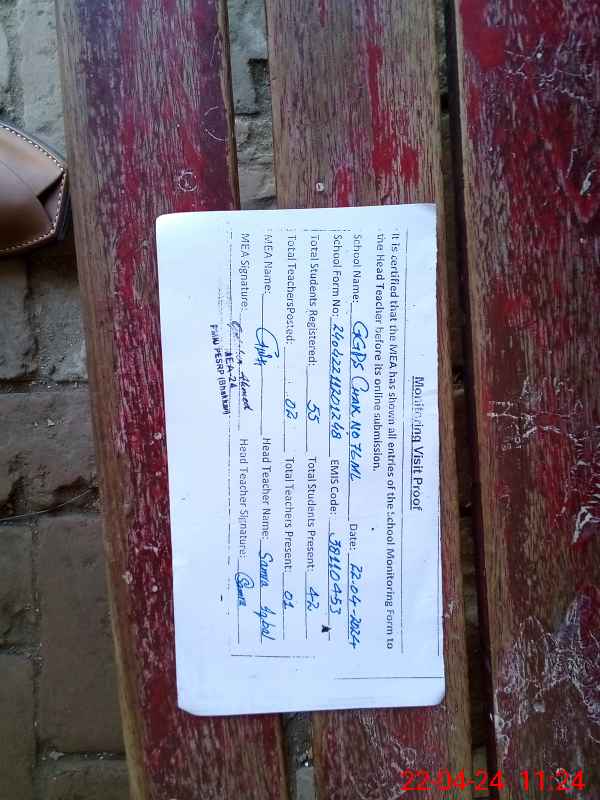 Monitoring Visit Proof
It is certified that the MEA has shown all entries of the School Monitoring Form to
the Head Teacher before its online submission.
School Name: GGPS Chak No 76.ML Date: 22-04-2024
School Form No: EMIS Code: 38110453
Total Students Registered: 55 Total Students Present: 42
Total TeachersPosted: 02 Total Teachers Present: 01
MEA Name: Head Teacher Name: Samra Iqbal
MEA Signature: Ahmed Head Teacher Signature: Samra
MEA-24
PMIU PESRP (Bhakkar)
22-04-24 11:24